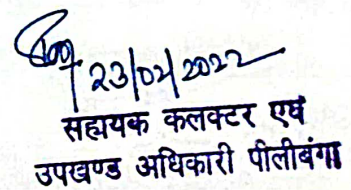 23/02/2022
सहायक कलक्टर एवं
उपखण्ड अधिकारी पीलीबंगा